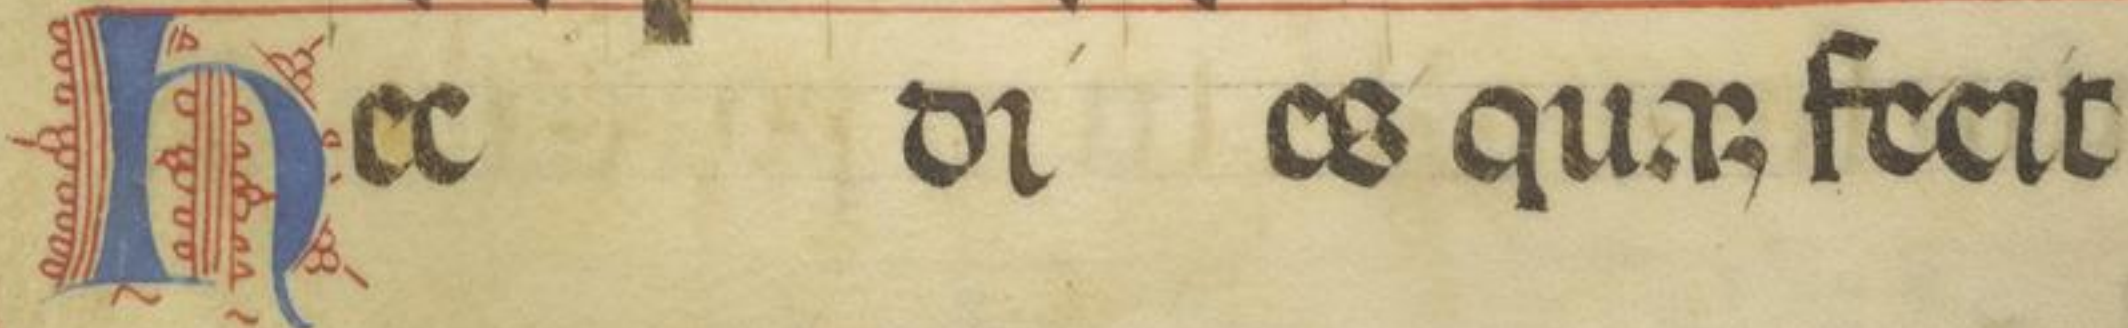 Hec di es quam fecit